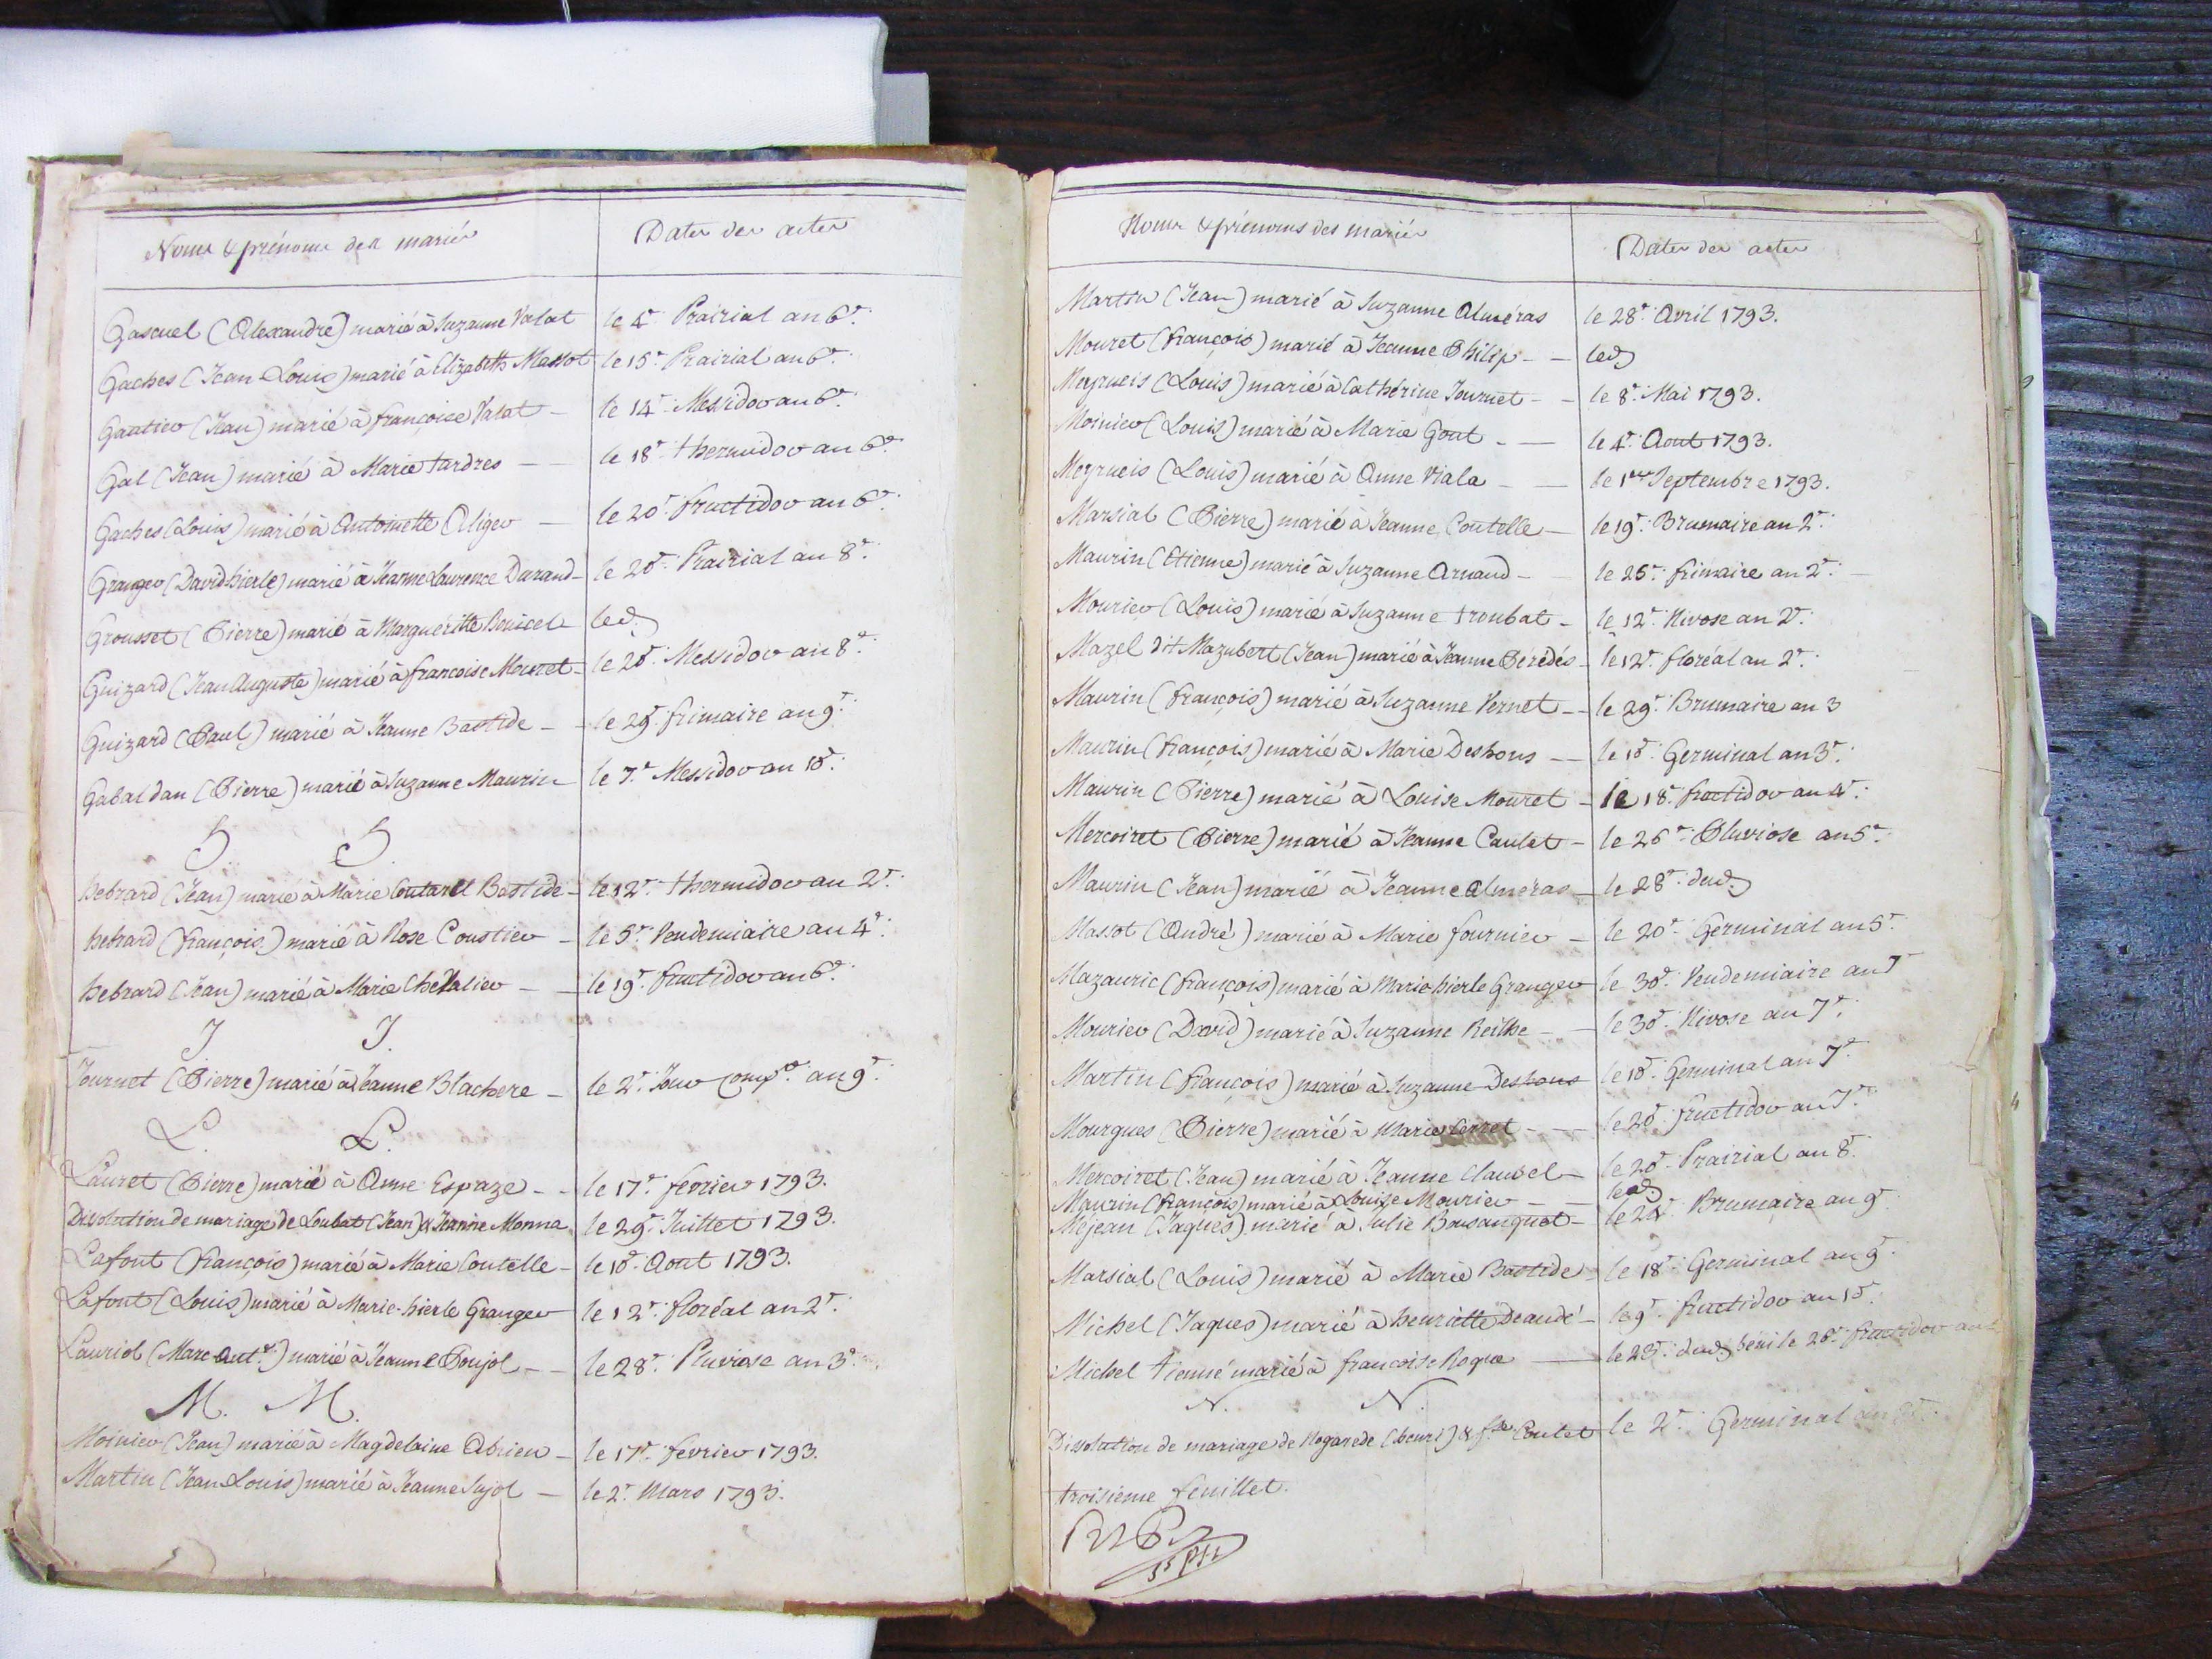 Noms & prénoms des mariés Dates des actes
Gascuel (Alexandre) marié à Suzanne Valat le 4e. Prairial an 6e.
Gaches (Jean Louis) marié à Elizabeth Massot le 15e. Prairial an 6e.
Gautier (Jean) marié à françoise Valat - le 14e. Messidor an 6e.
Gal (Jean) marié à Marie tardres - le 18e. thermidor an 6e.
Gaches (Louis) marié à Antoinette Aliger - le 20e. fructidor an 6e.
Granger (David hierle) marié à Jeanne Laurence Durand - le 20e. Prairial an 8e.
Grousset (Pierre) marié à Marguéritte Bruicel led.
Guizard (Jean Auguste) marié à françoise Mouret - le 20e. Messidor an 8e.
Guizard (Paul) marié à Jeanne Bastide - - le 29e. frimaire an 9e.
Gabaldan (Pierre) marié à Suzanne Maurin - le 7.e Messidor an 10e.
H. H.
hebrard (Jean) marié à Marie Coutarel Bastide - le 12e. thermidor an 2e.
hebrard (françois) marié à Rose Coustier - le 5e. Vendemiaire an 4e.
hebrard (Jean) marié à Marie Chevalier - - le 19e. fructidor an 6e.
J J.
Journet (Pierre) marié à Jeanne Blachere - le 2e. Jour comp.re an 9e.
L. L.
Lauret (Pierre) marié à Anne Espaze - - le 17e. fevrier 1793.
Dissolution de mariage de Loubat (Jean) & Jeanne Monna le 29e. Juillet 1793.
Lafont (françois) marié à Marie Coutelle - le 10e. Aout 1793.
Lafont (Louis) marié à Marie-hierle Granger le 12e. floréal an 2e.
Lauriol (Marc Ant.e) marié à Jeanne Poujol - - le 28e. Pluviose an 3e.
M. M.
Moinier (Jean) marié à Magdelaine Abrieu - le 17e. fevrier 1793.
Martin (Jean Louis) marié à Jeanne Sujol - le 2e. Mars 1793.
Noms & prénoms des mariés Dates des actes
Martin (Jean) marié à Suzanne Alméras le 28e. Avril 1793.
Mouret (françois) marié à Jeanne Philip - - led.
Meyrueis (Louis) marié à Cathérine Journet - - le 8e. Mai 1793.
Moinier (Louis) marié à Marie Gout - - le 4e. Aout 1793.
Meyrueis (Louis) marié à Anne Viala - - le 1er Septembre 1793.
Marsial (Pierre) marié à Jeanne Coutelle - le 19e. Brumaire an 2e.
Maurin (Etienne) marié à Suzanne Arnaud - - le 26e. frimaire an 2e. -
Mourier (Louis) marié à Suzanne troubat - le 12e. Nivose an 2e.
Mazel dit Mazubert (Jean) marié à Jeanne Pérédés - le 12e. floréal an 2e.
Maurin (françois) marié à Suzanne Vernet - - le 29e. Brumaire an 3
Maurin (françois) marié à Marie Deshons - - le 10e. Germinal an 3e.
Maurin (Pierre) marié à Louise Mouret - le 18e. fructidor an 4e.
Mercoiret (Pierre) marié à Jeanne Caulet - le 26e. Pluviose an 5e.
Maurin (Jean) marié à Jeanne Alméras - le 28e. dud.
Massot (André) marié à Marie fournier - le 20e. Germinal an 5e.
Mazauric (françois) marié à Marie hierle Granger le 30e. Vendemiaire an 7e
Mourier (David) marié à Suzanne Reilhe - - le 30e. Nivose an 7e.
Martin (françois) marié à Suzanne Deshons le 10e. Germinal an 7e.
Mourgues (Pierre) marié à Marie Cerret - - - le 20e. fructidor an 7e.
Mercoiret (Jean) marié à Jeanne Clauzel - le 20e. Prairial an 8e.
Maurin (françois) marié à Louise Mourier - - led.
Méjean (Jaques) marié à Julie Bousanquet - le 24e. Brumaire an 9e.
Marsial (Louis) marié à Marie Bastide - le 18e. Germinal an 9e.
Michel (Jaques) marié à henriette Deaudé - le 9e. fructidor an 10e.
Michel tienné marié à françoise Roque - le 23e. dud. béni le 26e. fructidor an
N. N.
Dissolution de mariage de Nogarede (henri) & f.se Coulet le 2e. Germinal an
troisieme feuillet.